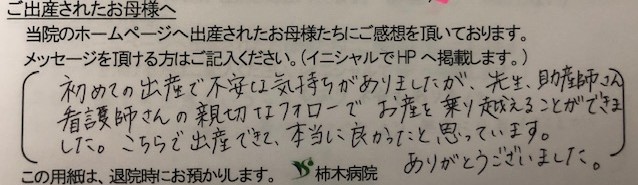 ご出産されたお母様へ
当院のホームページへ出産されたお母様たちにご感想を頂いております。
メッセージを頂ける方はご記入ください。(イニシャルでHPへ掲載します。)
初めての出産で不安な気持ちがありましたが、先生、助産師さん
看護師さんの親切なフォローでお産を乗り越えることができま
した。こちらで出産できて、本当に良かったと思っています。
ありがとうございました。
この用紙は、退院時にお預かりします。 柿木病院